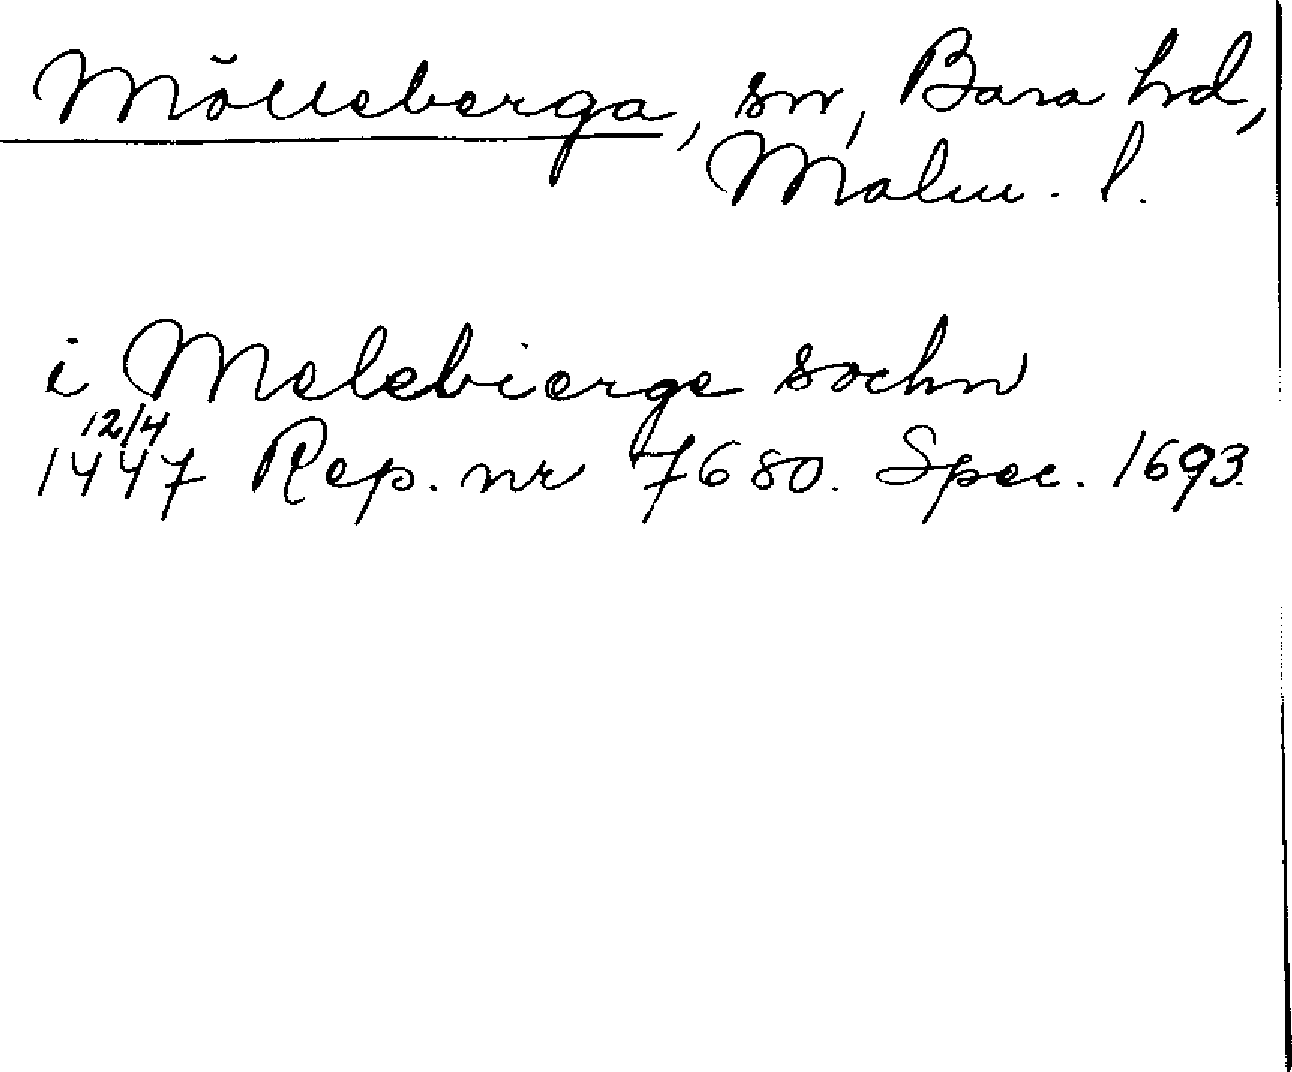 Mölleberga, sn, Bara hd,
Malm. l.
i Melebierge sochn
12/4
1447 Rep. nr 7680. Spec. 1693.